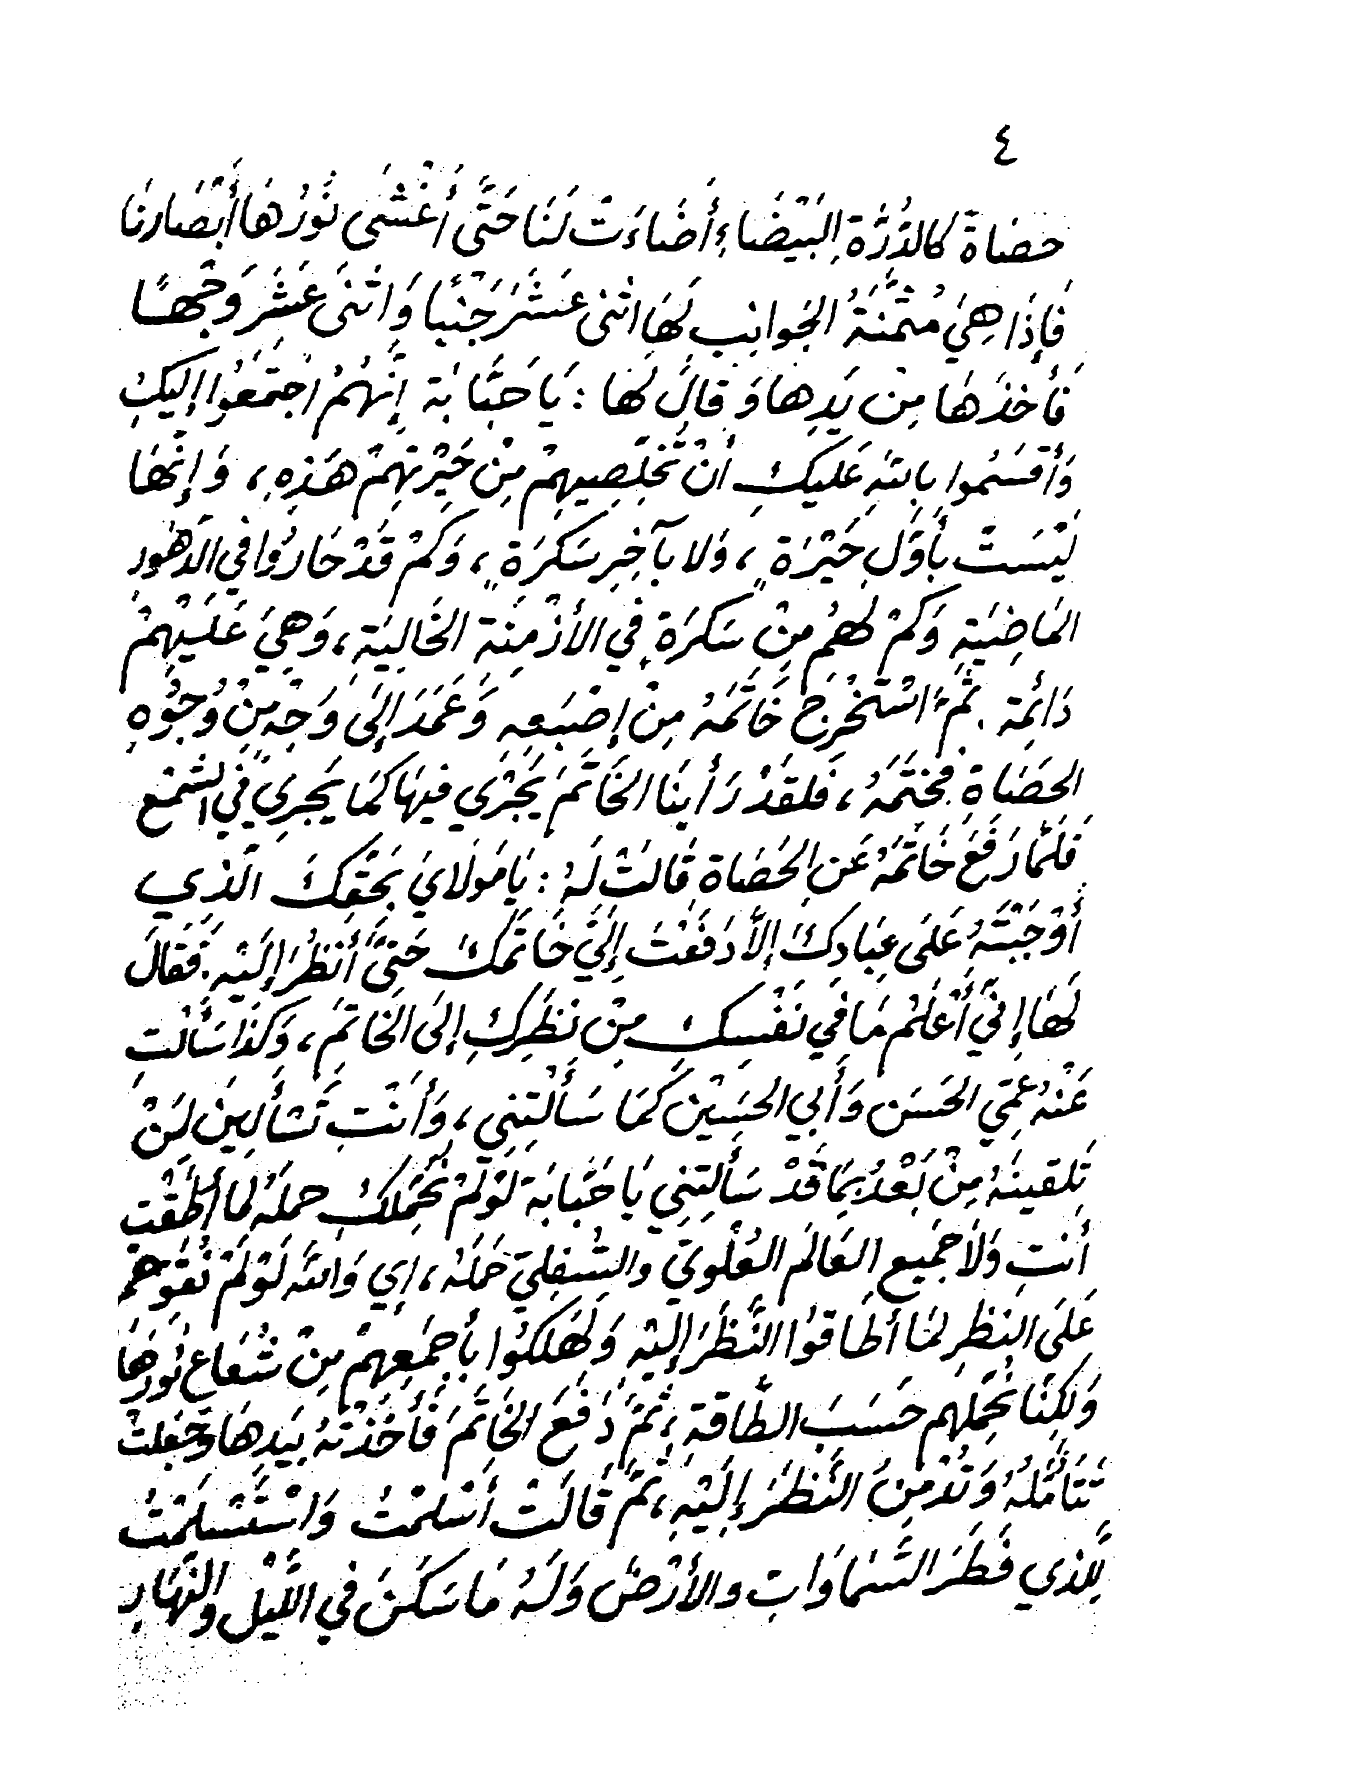 ٤
حصَاةً كالدُّرَّةِ البَيْضَاءِ أَضَاءَتْ لَنَا حَتَّى أَعْشَى نُورُهَا أَبْصَارَنَا
فَإِذَا هِيَ مُثَمَّنَةُ الجَوانِبِ لَهَا اثْنى عَشَرَ جَنْبًا وَاثْنَى عَشَرَ وَجْهًا
فَأَخَذَهَا مِنْ يَدِها وَقالَ لَهَا : يَا حَبَّابَة إِنَّهُمْ اجْتَمَعُوا إِليكِ
وَأَقْسَمُوا بِاللهِ عَليكِ أنْ تُخَلِّصِيهِمْ مِنْ حَيْرَتِهِمْ هَذِهِ، وَإِنَّهَا
لَيْسَتْ بِأَوَّلِ حَيْرَةٍ، وَلا بآخِرِ سَكرَةٍ، وَكَمْ قَدْ حَارُوا في الدّهُورِ
المَاضِيَةِ وَكَمْ لَهُمْ مِنْ سَكرَةٍ في الأَزْمِنَة الخَالِيَةِ، وَهِيَ عَلَيْهِمْ
دَائِمَة . ثُمَّ اسْتَخْرَجَ خَاتَمَهُ مِنْ إِصْبَعِهِ وَعَمَدَ إِلَى وَجْهٍ مِنْ وُجُوهِ
الحَصَاةِ فَختَمَهُ، فَلقَدْ رَأينَا الخَاتَمَ يَجْرِي فيهَا كَمَا يَجرِي في الشَّمْعِ
فَلَمَّا رَفَعَ خَاتَمَهُ عَنِ الحَصَاةِ قَالتْ لَهُ : يَا مَولَايَ بَحَقِّكَ الَّذي
أَوْجَبْتَهُ عَلَى عِبَادكَ إِلَّا دَفَعْتَ إِلَيَّ خَاتَمَكَ حَتىَّ أَنظُرَ إِلَيْهِ. فَقَالَ
لَهَا إِنِّي أَعْلَمُ مَا في نَفْسِكِ مِنْ نظَرِكِ إِلَى الخَاتَمِ، وَكَذَا سَأَلْتِ
عَنْهُ عَمِّي الحَسَن وَأَبي الحسَيْن كَمَا سَأَلْتِنِي، وَأَنْتِ تَسْأَلِينَ لَنْ
تَلقينَهُ مِنْ بَعْدُ بِمَا قَدْ سَأَلتِنِي يَا حَبَابَة لَوْلَمْ نُحَمِّلكِ حملَهُ لما أَطَقْتِ
أنتِ وَلَا جَمِيع العَالَم العُلْوِيّ والسُّفلِيّ حَمْلَهُ، إِي وَاللهِ لَوْ لَمْ نُقَوِّهِمْ
عَلَى النظرِ لمَا أطَاقُوا النَّظَرَ إِلَيْهِ وَلَهَلَكُوا بِأَجْمَعِهِمْ مِنْ شُعَاعِ نُورِهَا
وَلكِنَّا نُحَمِّلهم حَسَبَ الطَّاقة، ثُمَّ دَفَعَ الخَاتَمَ فَأَخَذَتْهُ بِيَدِهَا وَجَعَلتْ
تَتَأَمَّلُهُ وَتُدْمِنَ النَّظَرَ إِلَيْهِ، ثُمَّ قَالَتْ أَسْلَمْتُ وَاسْتَسْلَمْتُ
لِلَّذِي فَطَرَ السَّمَاوَاتِ والأَرْضَ وَلَهُ مَا سَكَنَ في اللَّيْلِ وَالنَّهَارِ